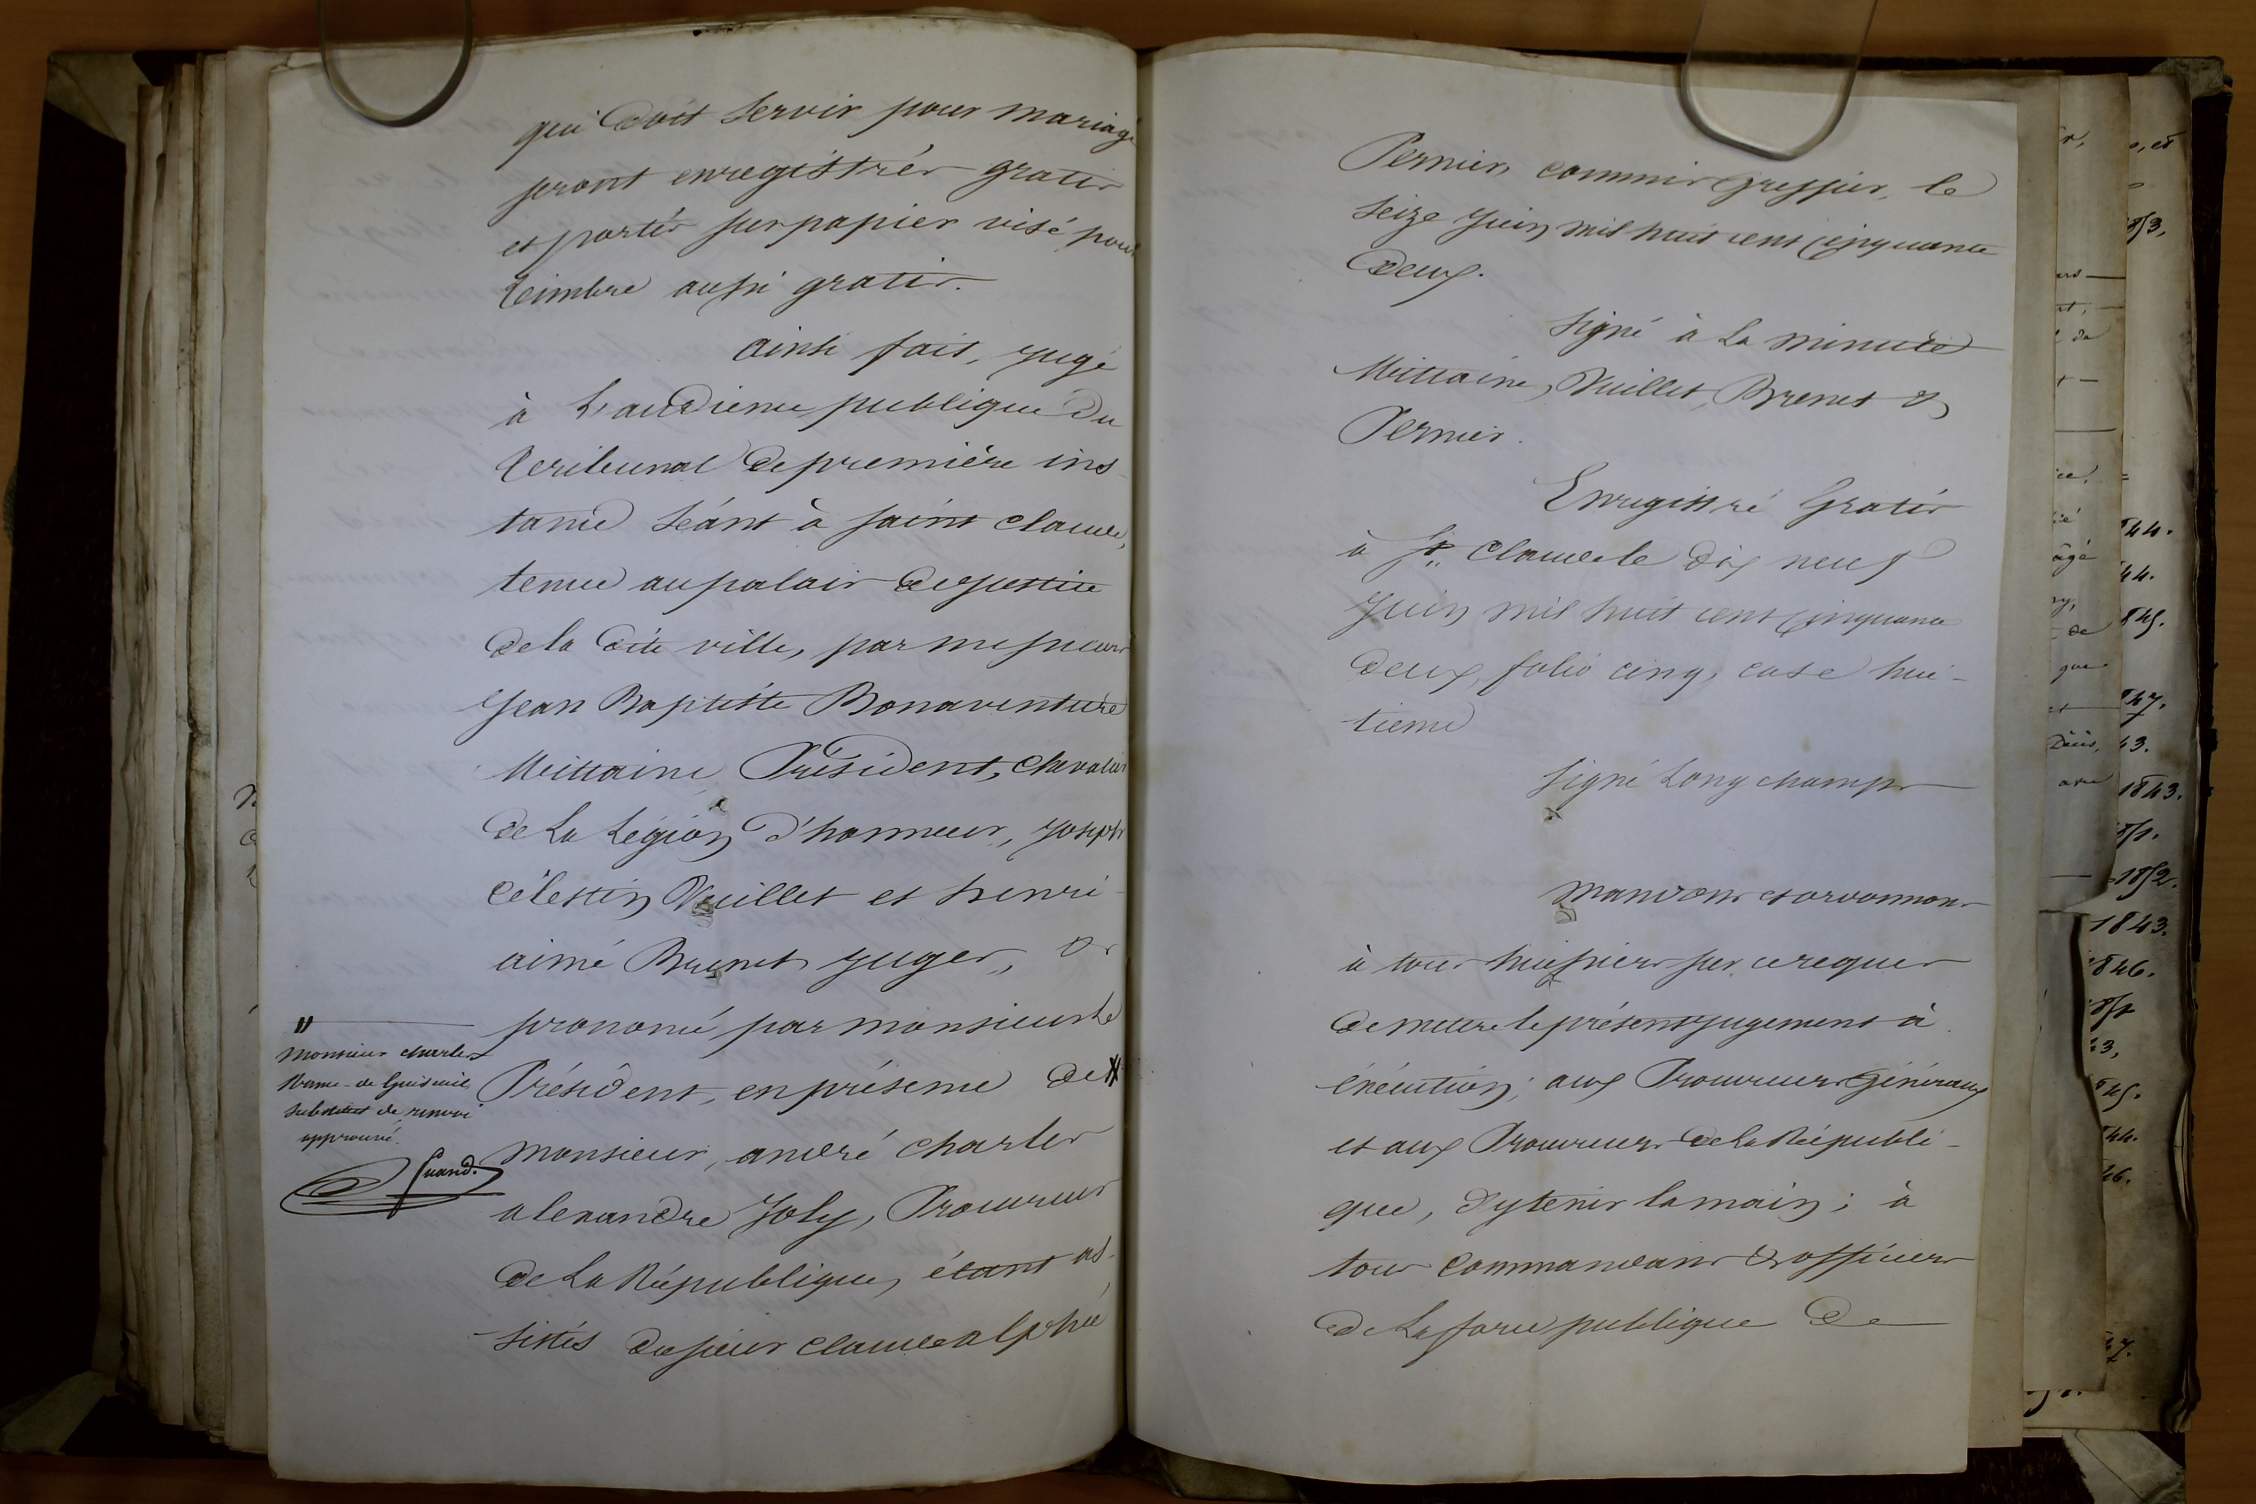 qui doit servir pour mariage
seront enregistrés gratis
et portés sur papier visé pour
timbre aussi gratis.
ainsi fait, jugé
à L'audience publique du
Tribunal de première ins-
tance séant à saint claude,
tenue au palais de justice
de la dite ville, par messieurs
Jean Baptiste Bonaventure
Mittaine, Président, chevalier
de La Légion d'honneur, Joseph
Célestin Vuillet et henri
aimé Brenet juges, et
prononcé par monsieur le
Président, en présence de
monsieur, andré charles
alexandre Joly, Procureur
de La République, étant as-
sistés du sieur claude alphée
"
monsieur charles
substitut de renvoi
approuvé.
Pernier, commis greffier, le
seize juin mil huit cent cinquante
deux.
signé à La minute
Mittaine, Vuillet, Brenet et
Pernier.
Enregistré Gratis
à St. Claude le dix neuf
juin mil huit cent cinquante
deux, folio cinq, case hui-
tième
signé Longchamps
mandons et ordonnons
à tous huissiers sur ce requis
de mettre le présent jugement à
éxécution; aux Procureurs Généraux
et aux Procureurs de La Républi-
que, d'y tenir la main; à
tous commandans et officiers
de La force publique de